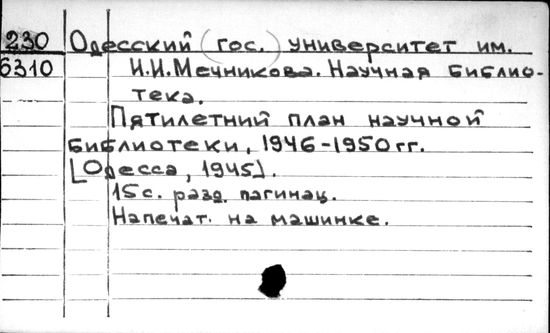 230 Одесский (гос.) университет им.
6310 И.И.Мечникова. Научная библио-
тека.
Пятилетний план научной
библиотеки, 1946-1950 гг.
[Одесса, 1945].
15с. разд. пагинац.
Напечат. на машинке.